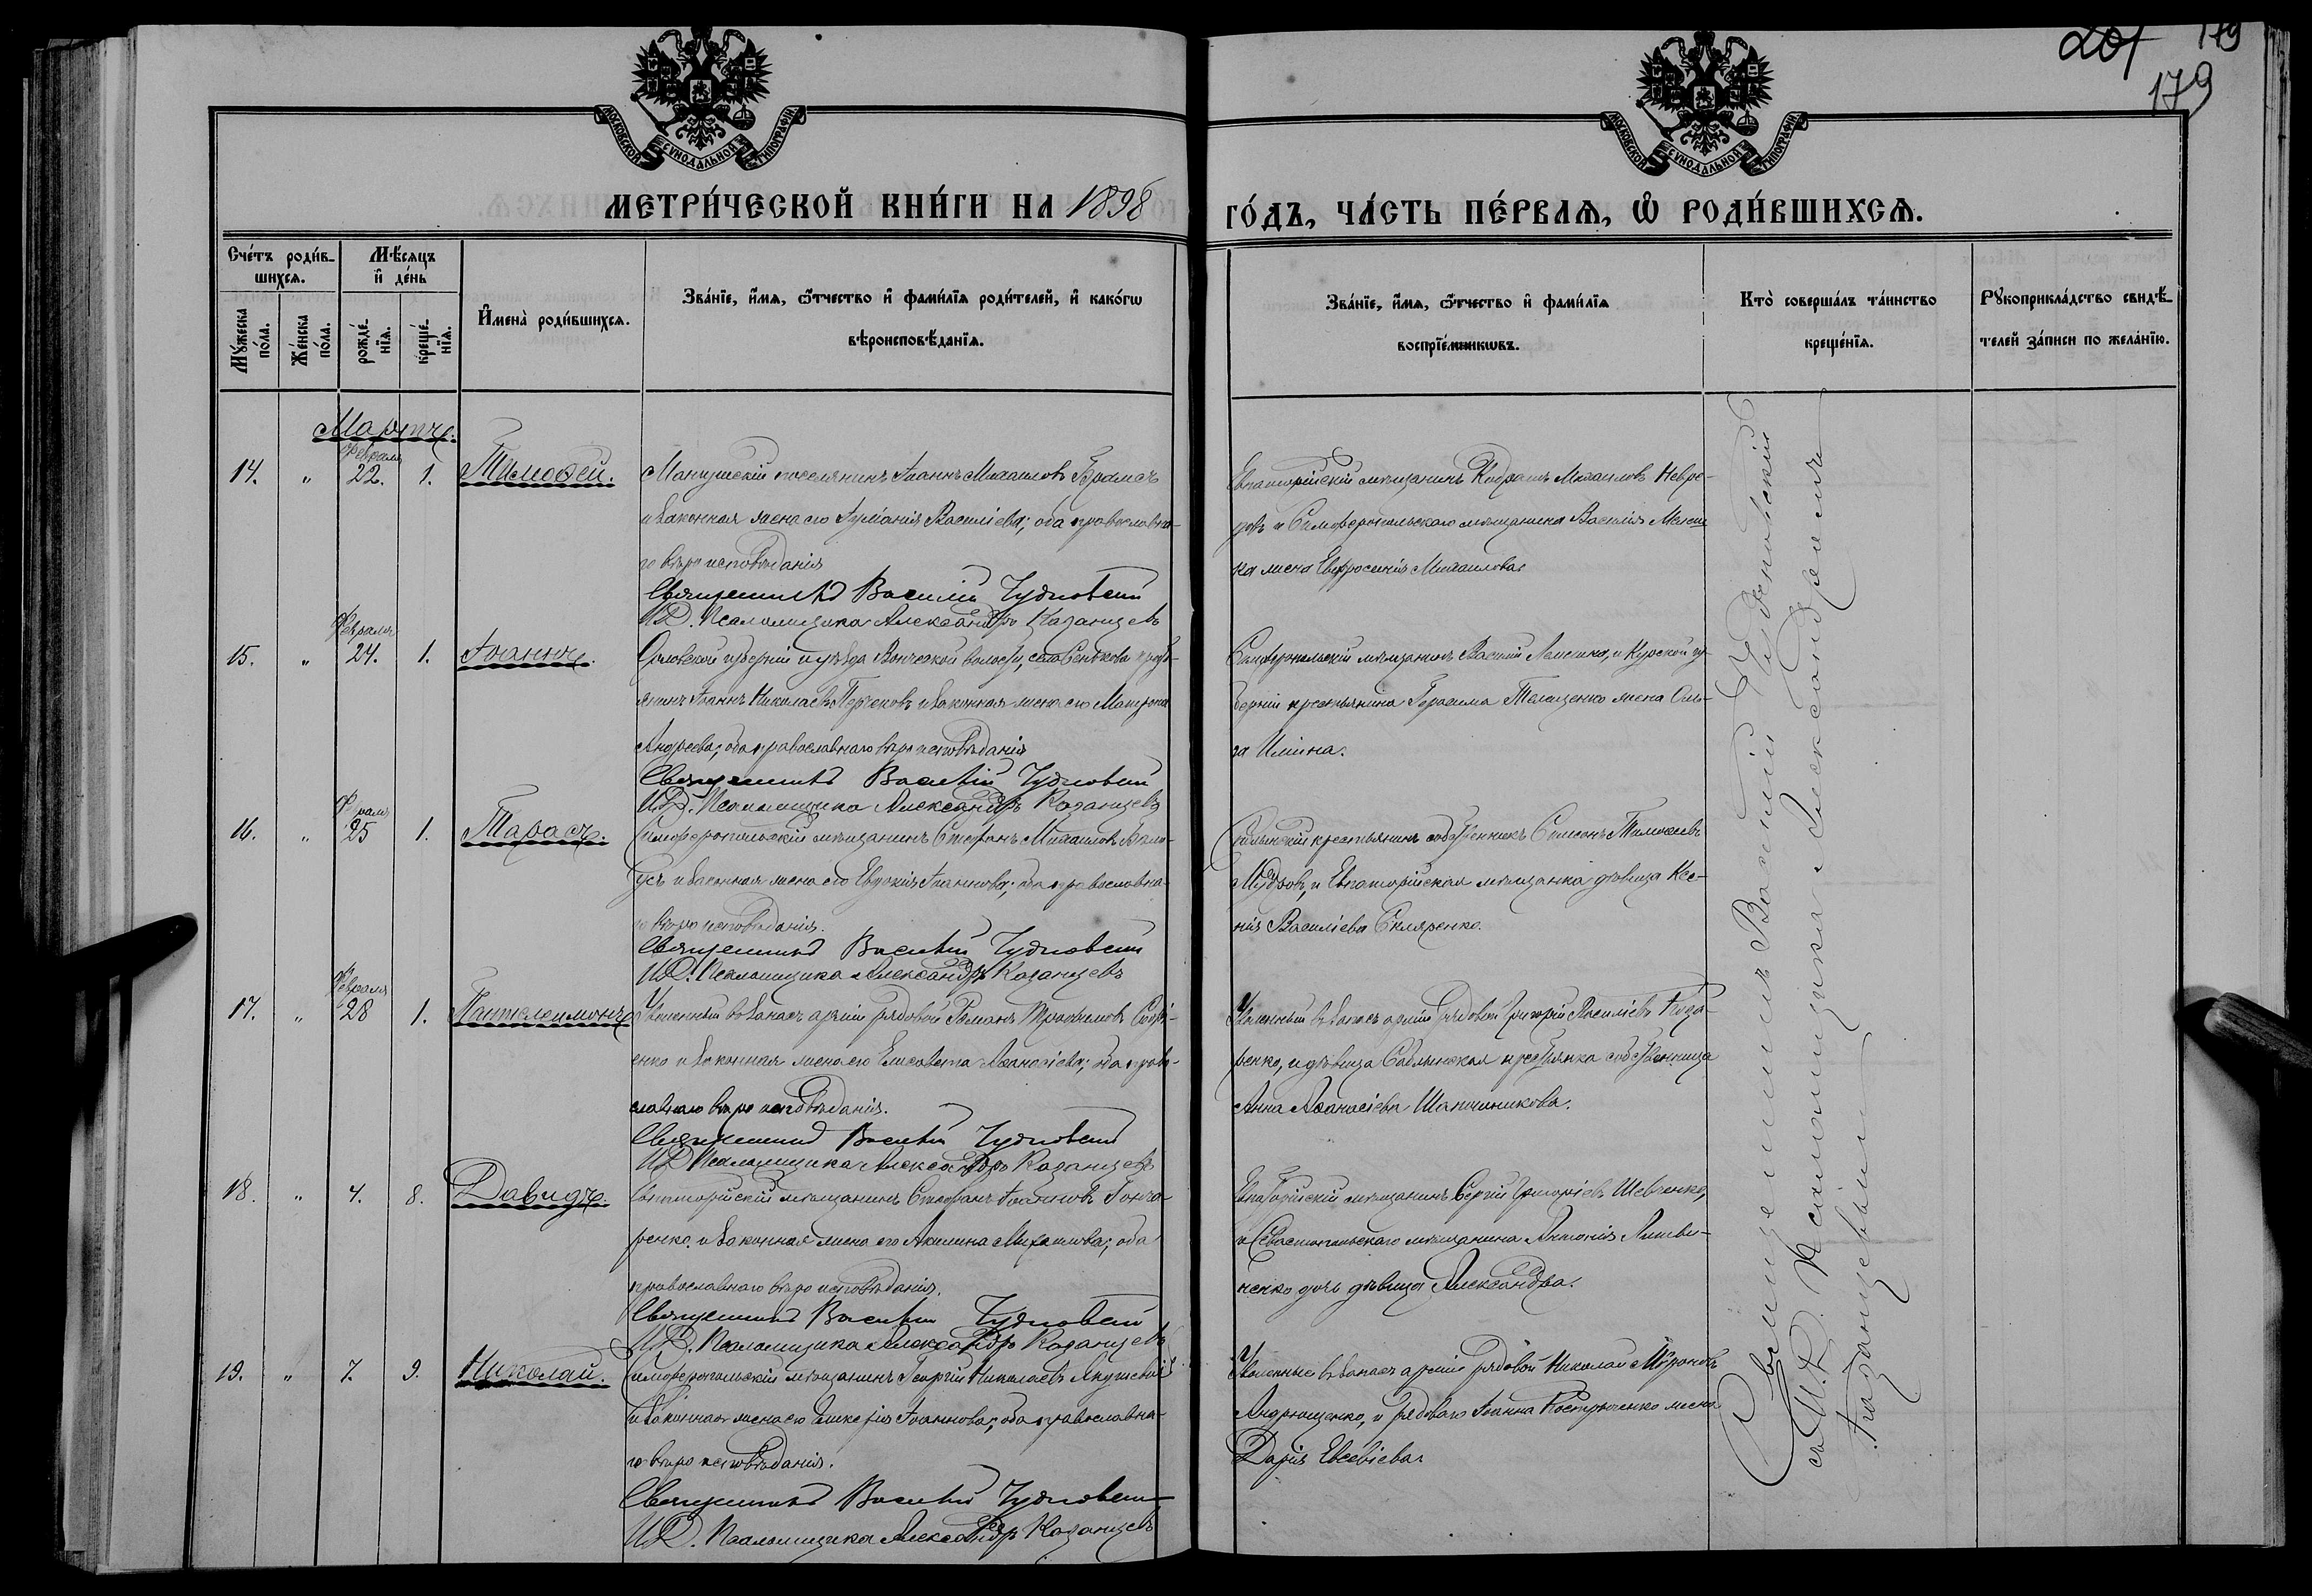 201 179
179
МОСКОВСКОЙ СѴНОДАЛЬНОЙ ТИПОГРАФІИ
МОСКОВСКОЙ СѴНОДАЛЬНОЙ ТИПОГРАФІИ
МЕТРИ́ЧЕСКОЙ КНИ́ГИ НА 1898
ГО́ДЪ, ЧА́СТЬ ПЕ́РВАѦ, Ѡ҆ РОДИ́ВШИХСѦ.
Сче́тъ роди́в-
шихсѧ.
Мꙋ́жеска
по́ла.
Же́нска
по́ла.
Мѣ́сѧцъ
и҆ де́нь
рожде́-
нїѧ.
креще́-
нїѧ.
И҆мена̀ роди́вшихсѧ.
Зва́нїе, и҆́мѧ, ѻ҆́тчество и҆ фами́лїѧ роди́телей, и҆ како́гѡ
вѣроисповѣ́данїѧ.
Зва́нїе, и҆́мѧ, ѻ҆́тчество и҆ фами́лїѧ
воспрїе́мникѡвъ.
Кто̀ соверша́лъ та́инство
креще́нїѧ.
Рꙋкоприкла́дство свидѣ́-
телей за́писи по жела́нїю.
Мартъ.
Февраля
14. " 22. 1. Тимоѳей.
Мангушскій поселянинъ Іоаннъ Михаиловъ
и законная жена его Васіліева; оба православна-
го вѣроисповѣданія
Священникъ Василій Чудновскій
И.Д. Псаломщика Александръ Казанцевъ
Евпаторійскій мѣщанинъ Михаиловъ
и Симферопольскаго мѣщанина Василія
жена Евфросинія Михаилова
Февраля
15. " 24. 1. Іоаннъ.
Орловской губерніи и уѣзда волости, села
Іоаннъ Николаевъ и законная жена его Матрона
Андреева; оба православнаго вѣроисповѣданія
Священникъ Василій Чудновскій
И.Д. Псаломщика Александръ Казанцевъ
Симферопольскій мѣщанинъ Василій и Курской гу-
берніи крестьянина Герасима жена Оль-
га
Февраля
16. " 25 1. Тарасъ.
Симферопольскій мѣщанинъ Стефанъ Михаиловъ
и законная жена его Евдокія Іоаннова; оба православна-
го вѣроисповѣданія.
Священникъ Василій Чудновскій
И.Д. Псаломщика Александръ Казанцевъ
Саблынскій крестьянинъ собственникъ Симеонъ Тимоѳеевъ
и Евпаторійская мѣщанка дѣвица Ксе-
нія Василіева Скляренко.
Февраля
17. " 28 1. Пантелеимонъ
Уволенный въ запасъ арміи рядовой Романъ Трофимовъ
енко и законная жена его Елисавета Аѳанасіева; оба право-
славнаго вѣроисповѣданія.
Священникъ Василій Чудновскій
И.Д. Псаломщика Александръ Казанцевъ
Уволенный въ запасъ арміи рядовой Григорій Василіевъ
ренко, и дѣвица Саблынская крестьянка собственница
Анна Аѳанасіева Шапошникова.
18. " 4. 8. Давидъ.
Евпаторійскій мѣщанинъ Стефанъ Іоанновъ Гонча-
ренко и законная жена его Акилина Михаилова; оба
православнаго вѣроисповѣданія.
Священникъ Василій Чудновскій
И.Д. Псаломщика Александръ Казанцевъ
Евпаторійскій мѣщанинъ Сергій Григоріевъ Шевченко,
и Севастопольскаго мѣщанина Антонія Литви-
ненко дочь дѣвица Александра.
19. " 7. 9. Николай.
Симферопольскій мѣщанинъ Георгій Николаевъ
и законная жена его Гликерія Іоаннова; оба православна-
го вѣроисповѣданія.
Священникъ Василій Чудновскій
И.Д. Псаломщика Александръ Казанцевъ
Уволенные въ запасъ арміи рядовой Николай Мѵроновъ
Андрющенко, и рядоваго Іоанна Костюченко жена
Дарія Евсевіева
Священникъ Василій Чудновскій
съ И.Д. Псаломщика Александромъ
Казанцевымъ